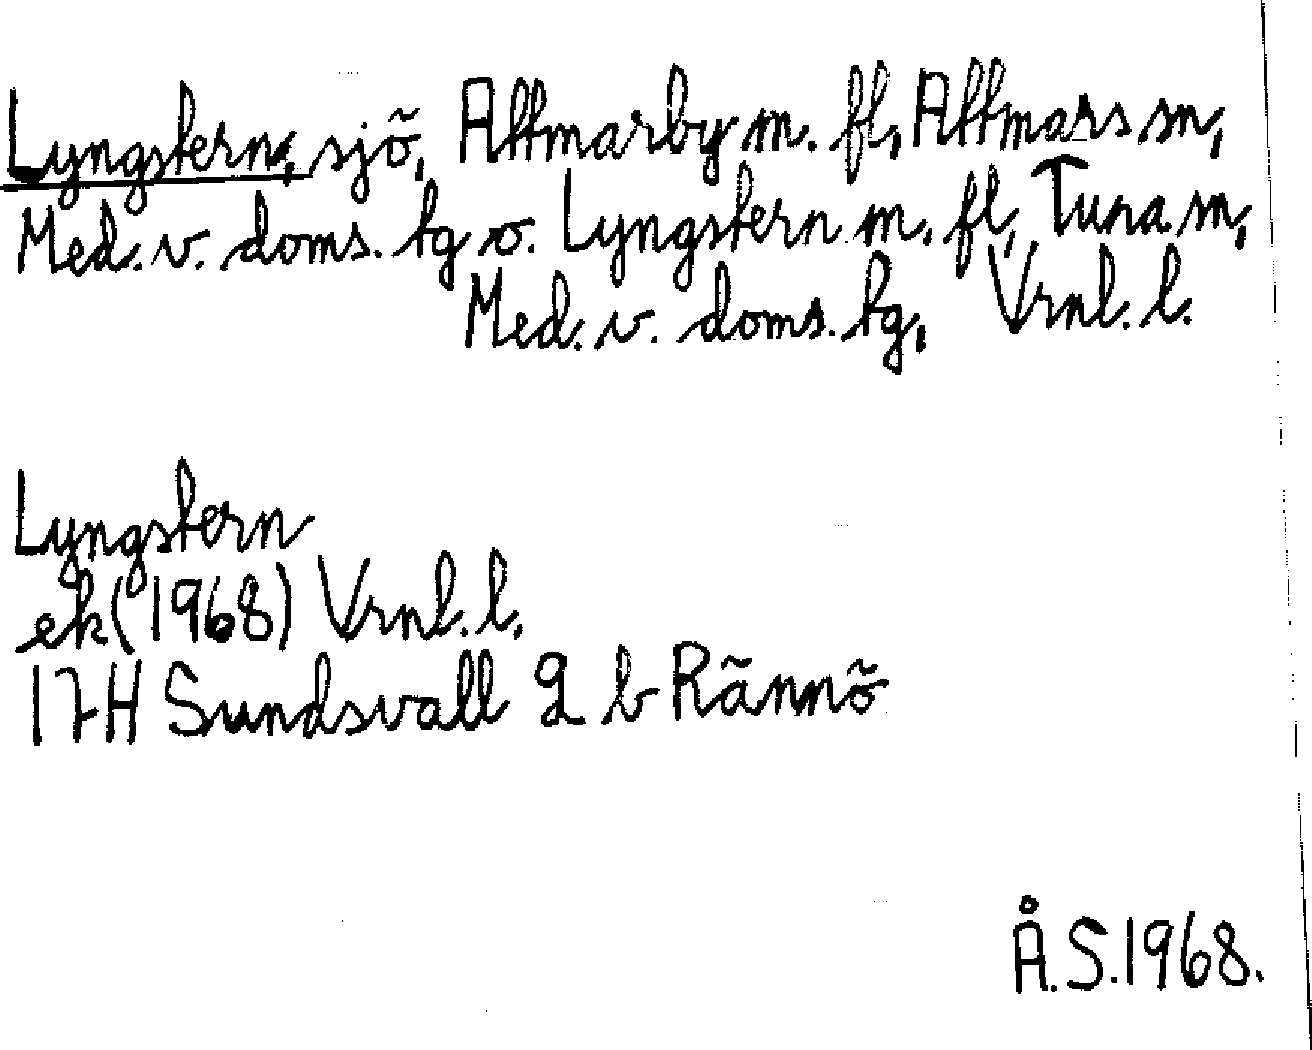 Lyngstern, sjö, Attmarby m. fl, Attmars sn,
Med. v. doms. tg o. Lyngstern m. fl, Tuna sn,
Med. v. doms. tg, Vrnl. l.
Lyngstern
ek (1968) Vrnl. l.
17H Sundsvall 2 b Rännö
Å.S.1968.